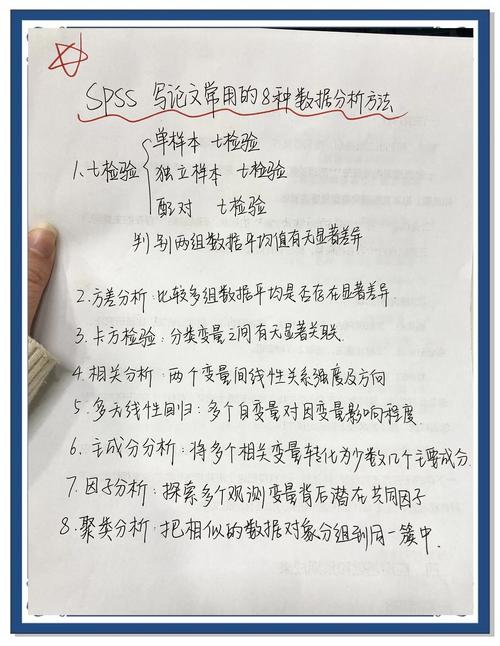 SPSS 写论文常用的8种数据分析方法
单样本 t检验
1、t检验 独立样本 t检验
配对 t检验
判别两组数据平均值有无显著差异
2.方差分析：比较多组数据平均是否存在显著差异
3.卡方检验：分类变量之间有无显著关联.
4.相关分析：两个变量间线性关系强度及方向
5.多元线性回归：多个自变量对因变量影响程度.
6.主成分分析：将多个相关变量转化为少数几个主要成分.
7.因子分析：探索多个观测变量背后潜在共同因子
8.聚类分析：把相似的数据对象分组到同一簇中.